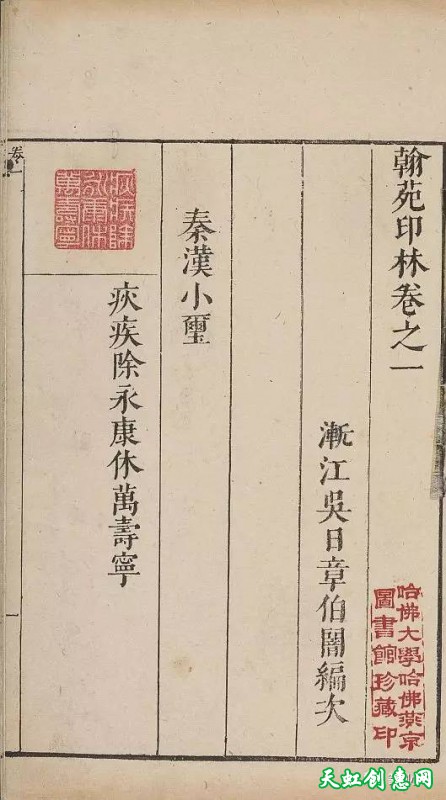 翰苑印林卷之一
漸江吳日章伯闇編次
哈佛大學哈佛燕京
圖書館珍藏印
秦漢小璽
疢疾除
永康休
萬壽寧
疢疾除永康休萬壽寧
卷一
一
天虹创惠网